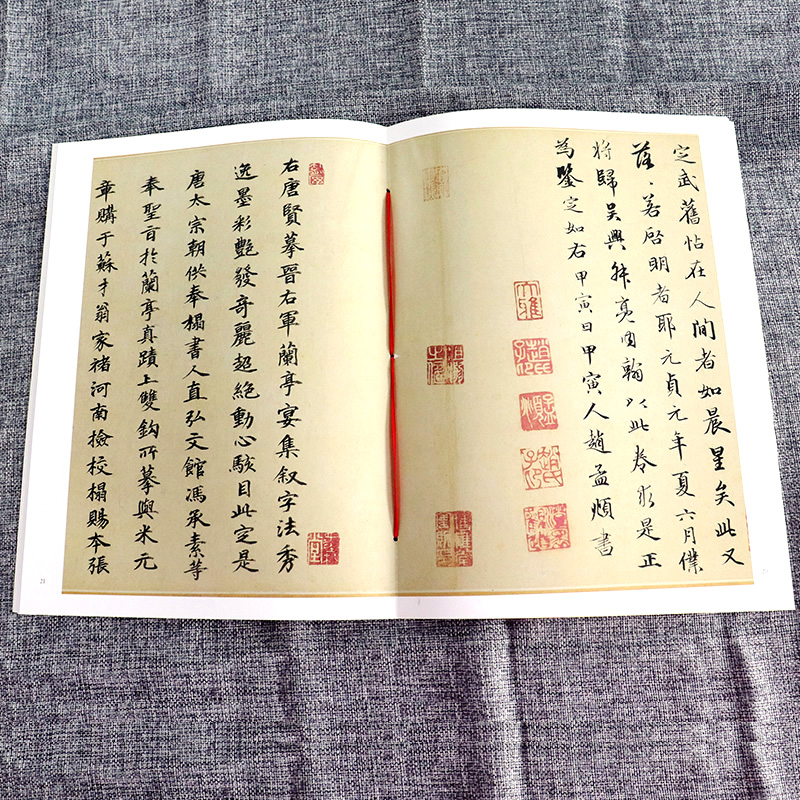 定武舊帖在人間者如晨星矣此又
落、若啓明者耶元貞元年夏六月僕
將歸吳興叔亮内翰以此卷求是正
為鑒定如右甲寅日甲寅人趙孟頫書
大雅
右唐賢摹晉右軍蘭亭宴集叙字法秀
逸墨彩艷發奇麗超絶動心駭目此定是
唐太宗朝供奉榻書人直弘文館馮承素等
奉聖旨於蘭亭真蹟上雙鈎所摹與米元
章購于蘇才翁家褚河南撿校榻賜本張